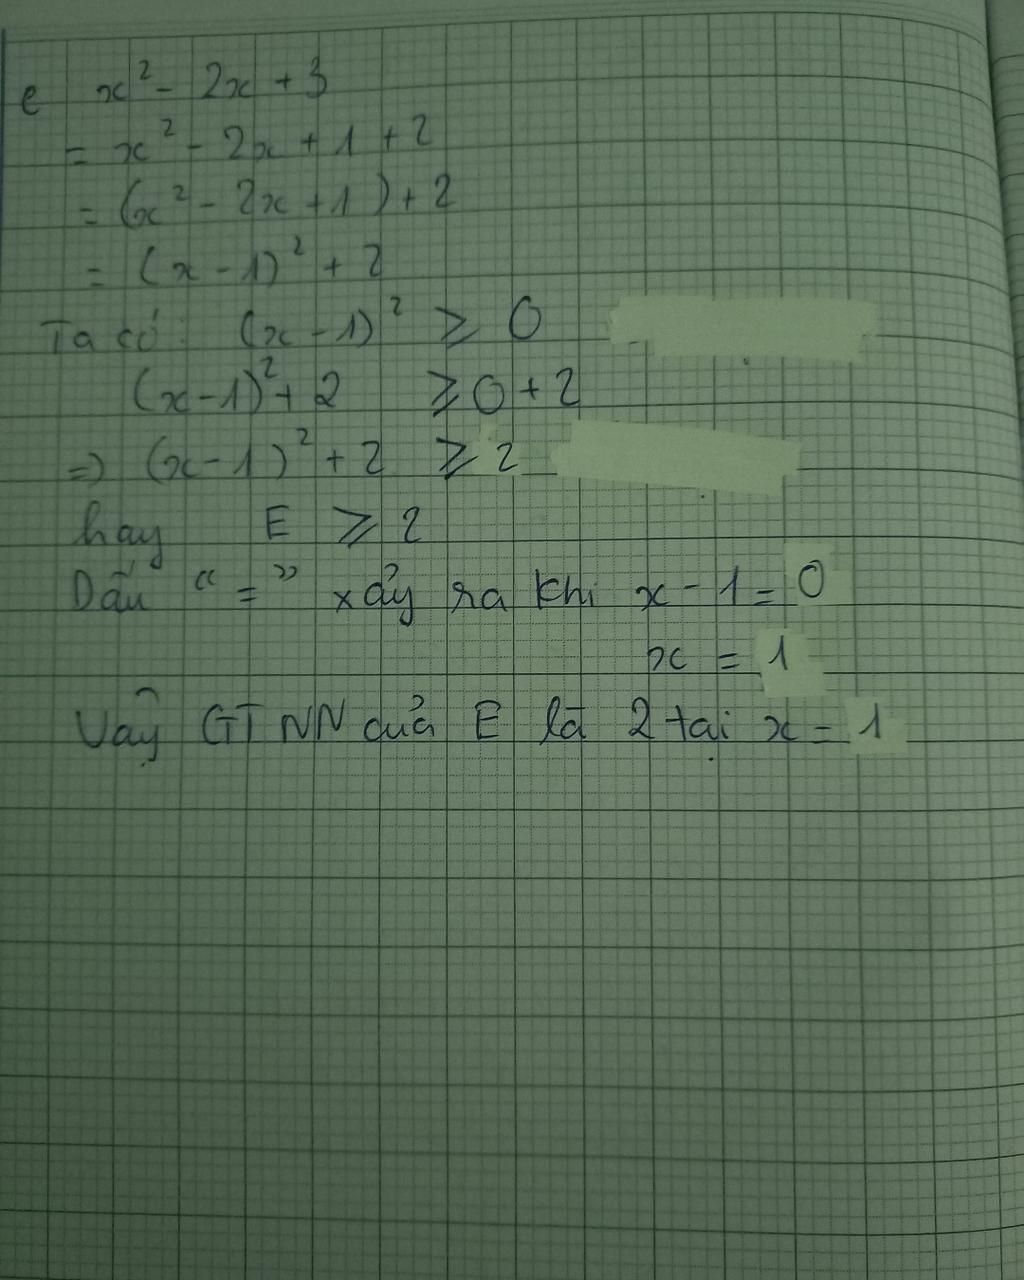 e x² - 2x + 3
= x² - 2x + 1 + 2
= (x² - 2x + 1) + 2
= (x - 1)² + 2
Ta có: (x - 1)² ⩾ 0
(x - 1)² + 2 ⩾ 0 + 2
=> (x - 1)² + 2 ⩾ 2
hay E ⩾ 2
Dấu “ = ” xảy ra khi x - 1 = 0
x = 1
Vậy GTNN của E là 2 tại x = 1